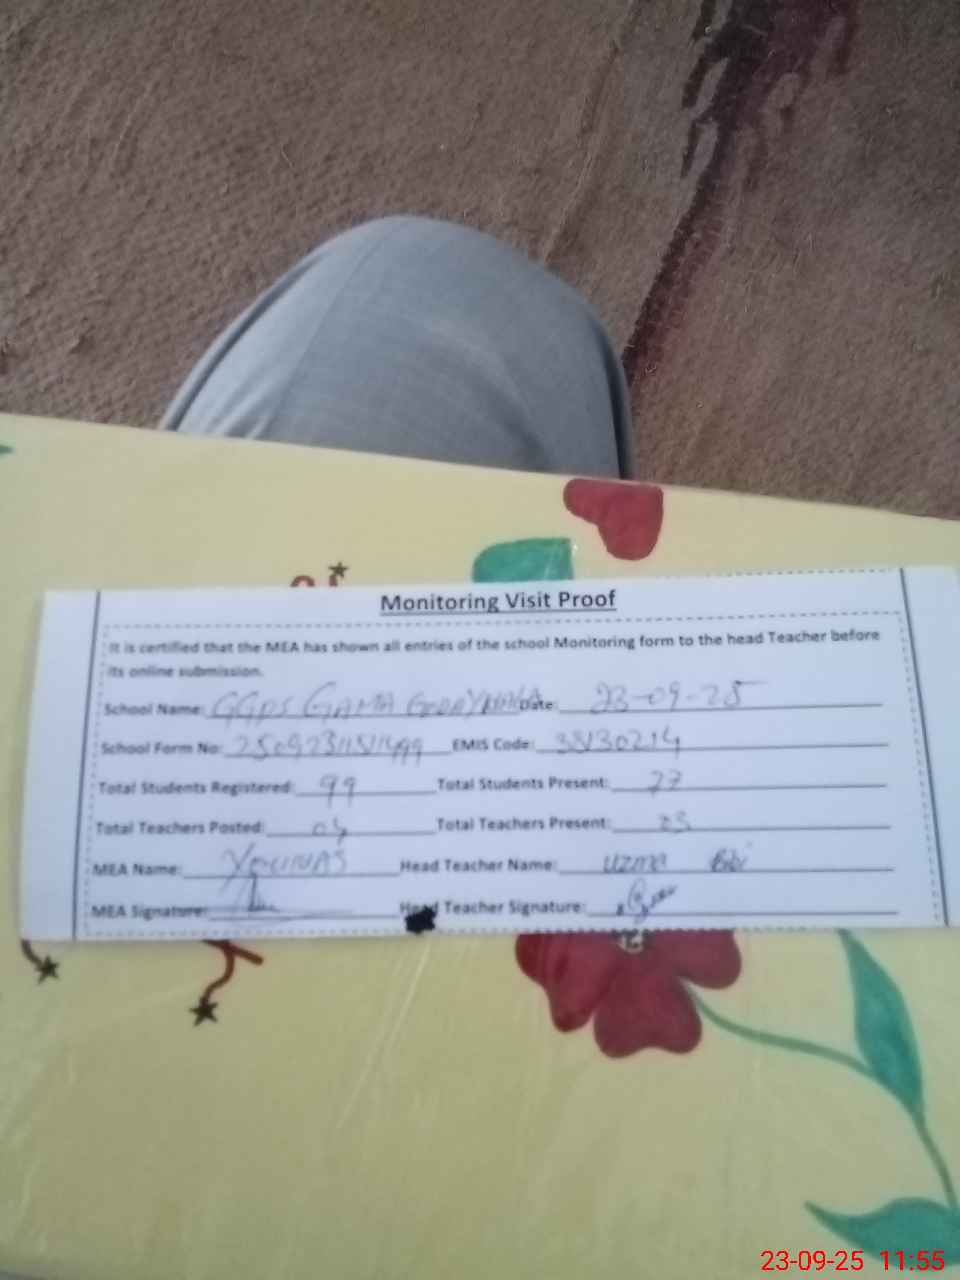 Monitoring Visit Proof
It is certified that the MEA has shown all entries of the school Monitoring form to the head Teacher before
its online submission.
School Name: GGPS GAMA Date: 23-09-25
School Form No: EMIS Code:
Total Students Registered: 99 Total Students Present: 77
Total Teachers Posted: 04 Total Teachers Present:
MEA Name: Younas Head Teacher Name: Uzma Bibi
MEA Signature: Head Teacher Signature:
23-09-25 11:55